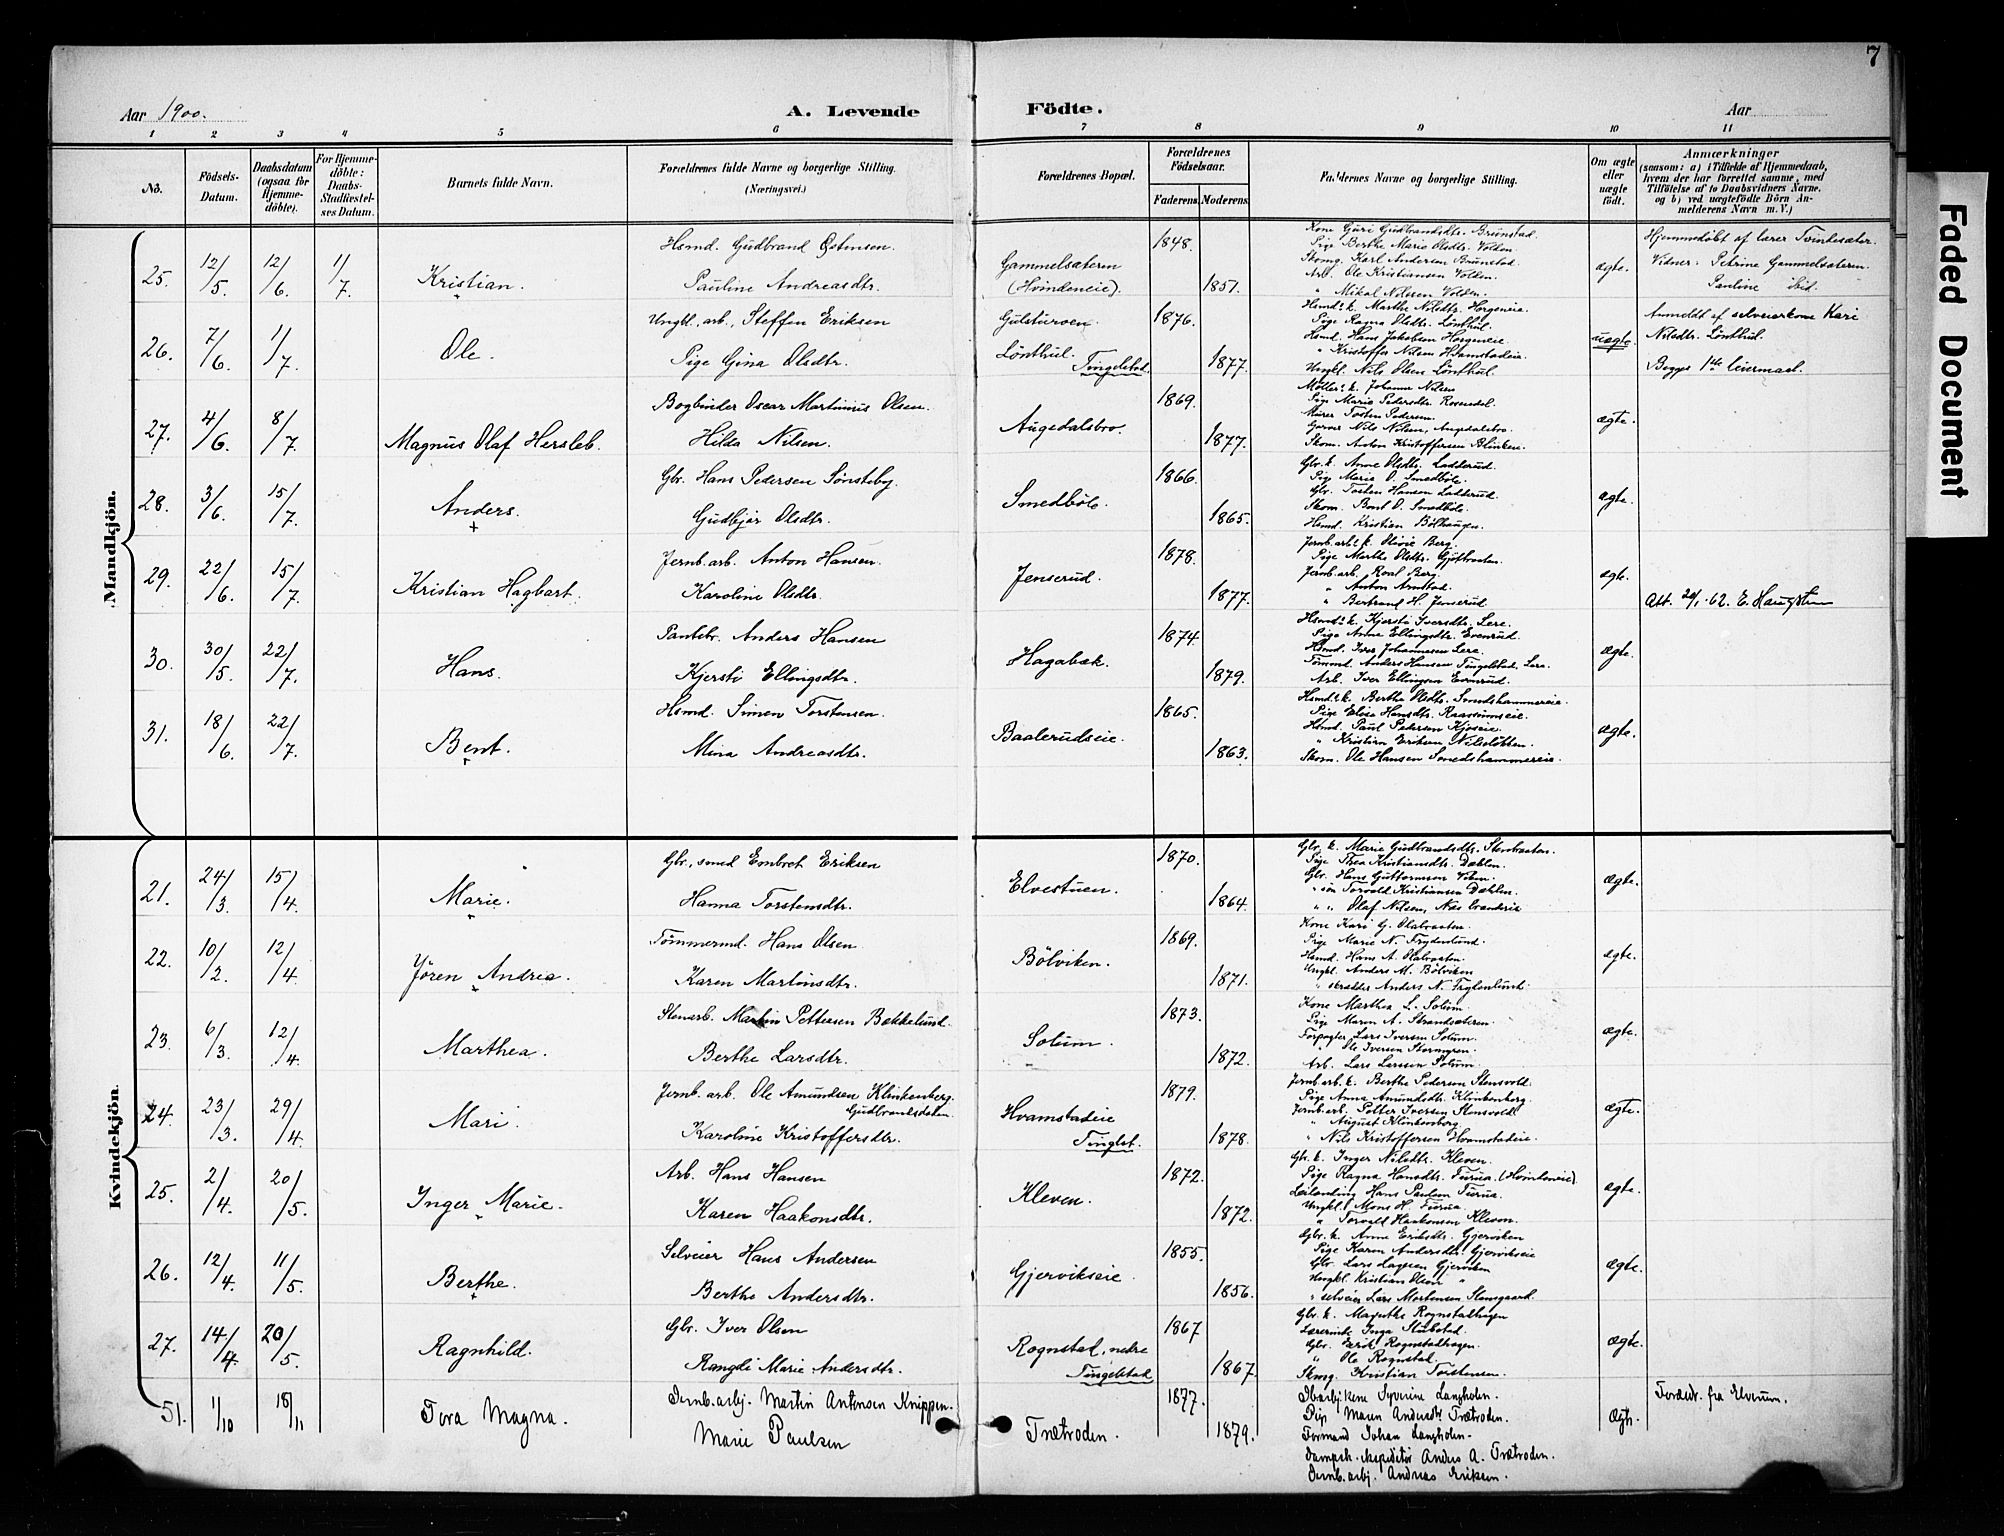 7
Aar 1900.
A. Levende Födte.
Aar
1 2 3 4 5 6 7 8 9 10 11
No.
Födsels-Datum.
Daabsdatum (ogsaa for Hjemmedöbte).
For Hjemmedöbte: Daabs-Stadfæstelses Datum.
Barnets fulde Navn.
Forældrenes fulde Navne og borgerlige Stilling. (Næringsvei.)
Forældrenes Bopæl.
Forældrenes Födselsaar.
Faderens. Moderens.
Faddernes Navne og borgerlige Stilling.
Om ægte eller uægte födt.
Anmærkninger
(saasom: a) i Tilfælde af Hjemmedaab, hvem der har forrettet samme, med Tilföielse af to Daabsvidners Navne, og b) ved uægtefödte Börn Anmelderens Navn m. V.)
Mandkjön.
25. 12/5 12/6 1/7 Kristian.
Hsmd. Gudbrand Östensen
Pauline Andreasdtr.
Gammelsæteren (Hvindeneie).
1848. 1851.
Kone Guri Gudbrandsdtr. Brunstad.
Pige Berthe Marie Olsdtr. Volden.
Skomg. Karl Andersen Brunstad
Arb. Ole Kristiansen Volden.
" Mikal Nilsen Volden.
ægte.
Hjemmedøbt af lærer Tvindesæter.
Vidner: Petrine Gammelsæteren.
Pauline ibid.
26. 7/6 1/7 Ole.
Ungkl., arb., Steffen Eriksen
Pige Gina Olsdtr.
Gulsturoen.
Lönthul. Tingelstad.
1876. 1877.
Hsmd's k. Marthe Nilsdtr. Horgeneie.
Pige Ragna Olsdtr. Lönthul.
Hsmd. Hans Jakobsen Horgeneie
" Kristoffer Nilsen Hvamstadeie.
Ungkl. Nils Olsen Lönthul.
uægte.
Anmeldt af selveierkone Kari
Nilsdtr. Lönthul.
Begges 1ste leiermaal.
27. 4/6 8/7 Magnus Olaf Hersleb.
Bogbinder Oscar Martinius Olsen.
Hilda Nilsen.
Augedalsbro.
1869. 1877.
Möller's k. Johanne Nilsen
Pige Marie Pedersdtr. Rosendal.
Murer Torsten Pedersen.
Garver Nils Nilsen, Augedalsbro.
Skom. Anton Kristoffersen Blinken.
ægte.
28. 3/6 15/7 Anders.
Gbr. Hans Pedersen Sønsteby.
Gudbjör Olsdtr.
Smedböle.
1866. 1865.
Gbr. k. Anne Olsdtr. Ladderud.
Pige Marie O. Smedböle.
Gbr. Torsten Hansen Ladderud.
Skom. Bent O. Smedböle.
Hsmd. Kristian Bölhaugen.
ægte.
29. 22/6 15/7 Kristian Hagbart.
Jernb. arb. Anton Hansen.
Karoline Olsdtr.
Jenserud.
1878. 1877.
Jernb. arb.s k. Olivie Berg.
Pige Marthe Olsdtr. Gjötbraaten.
Jernb. arb. Roal Berg.
" Anton Arnstad.
" Bertrand H. Jenserud.
ægte.
Att. 29/1.62. E. Haugstrum
30. 30/5. 22/7. Hans.
Pantebr. Anders Hansen
Kjersti Ellingsdtr.
Hagabæk.
1874. 1879.
Hsmd's k. Kjersti Iversdtr. Lere.
Pige Anne Ellingsdtr. Evenrud.
Hsmd. Iver Johannesen Lere.
Tömmd. Anders Hansen Tingelstad, Lere.
Arb. Iver Ellingsen Evenrud.
ægte.
31. 18/6 22/7. Bent.
Hsmd. Simen Torstensen.
Mina Andreasdtr.
Baalerudseie.
1865. 1863.
Hsmd's k. Berthe Olsdtr. Smedshammereie.
Pige Elise Hansdtr. Raassumseie.
Hsmd. Paul Pedersen Kjoseie.
" Kristian Eriksen Nilslökken.
Skom. Ole Hansen Smedshammereie.
ægte.
Kvindekjön.
21. 24/3 15/4 Marie.
Gbr., smed Embret Eriksen
Hanna Torstensdtr.
Elvestuen.
1870. 1864.
Gbr. k. Marie Gudbrandsdtr. Stenbraaten.
Pige Thea Kristiansdtr. Dæhlen.
Gbr. Hans Guttormsen Velsen.
" sön Torvald Kristiansen Dæhlen.
" " Olaf Nilsen, Næs
ægte.
22. 10/2 12/4 Jören Andrea.
Tömmermd. Hans Olsen
Karen Martinsdtr.
Bölviken.
1869. 1871.
Kone Kari G. Olabraaten.
Pige Marie N. Frydenlund.
Hsmd. Hans A. Olabraaten.
Ungkl. Anders M. Bölviken
" skrædder Anders N. Frydenlund.
ægte.
23. 6/3 12/4 Marthea.
Stenarb. Martin Pettersen Bækkelund.
Berthe Larsdtr.
Solum.
1873. 1872.
Kone Marthea L. Solum.
Pige Maren A. Strandsæteren.
Forpagter Lars Iversen Solum.
Ole Iversen Stormyren.
Arb. Lars Larssen Solum.
ægte.
24. 23/3. 29/4. Mari.
Jernb. arb. Ole Amundsen Klinkenberg. Gudbrandsdalen.
Karoline Kristoffersdtr.
Hvamstadeie Tinglst.
1879. 1878.
Jernb. arb. k. Berthe Pedersen Stensvold.
Pige Anna Amundsdtr. Klinkenberg.
Jernb. arb. Petter Iversen Stensvold.
" August Klinkenberg.
" Nils Kristoffersen Hvamstadeie.
ægte.
25. 2/4. 20/5. Inger Marie.
Arb. Hans Hansen
Karen Haakonsdtr.
Kleven.
1872. 1872.
Gbr. k. Inger Nilsdtr. Kleven.
Pige Ragna Hansdtr. Furua. (Hvindeneie).
Leilending Hans Paulsen Furua.
Ungkl. Mons H. Furua.
" Torvald Haakonsen Kleven.
ægte.
26. 12/4. 11/5. Berthe.
Selveier Hans Andersen
Berthe Andersdtr.
Gjervikseie.
1855. 1856.
Gbr. k. Anne Eriksdtr. Gjerviken
Pige Karen Andersdtr. Gjervikseie
Gbr. Lars Larsen Gjerviken
Ungkl. Kristian Olsen "
" selveier Lars Mortensen Stensgaard.
ægte.
27. 14/4 20/5. Ragnhild.
Gbr. Iver Olsen
Rangdi Marie Andersdtr.
Rognstad, nedre Tingelstad
1867 1867.
Gbr. k. Magnthe Rognstadhagen
Lærerinde Inga Stubstad.
Gbr. Erik Rognstadhagen.
" Ole Rognstad.
Skmg. Kristian Torstensen.
ægte.
51. 1/10 18/11 Tora Magna.
Jernb. arbj. Martin Antonsen Knippen.
Marie Paulsen
Trætroden.
1877. 1879.
Pige Maren Andersdtr Trætroden.
Formand Johan Langholen.
Dampsk. expeditør Andres A. Trætroden.
Jernb. arbj. Andreas Eriksen.
ægte.
Forældr. fra Elverum.
Faded Document